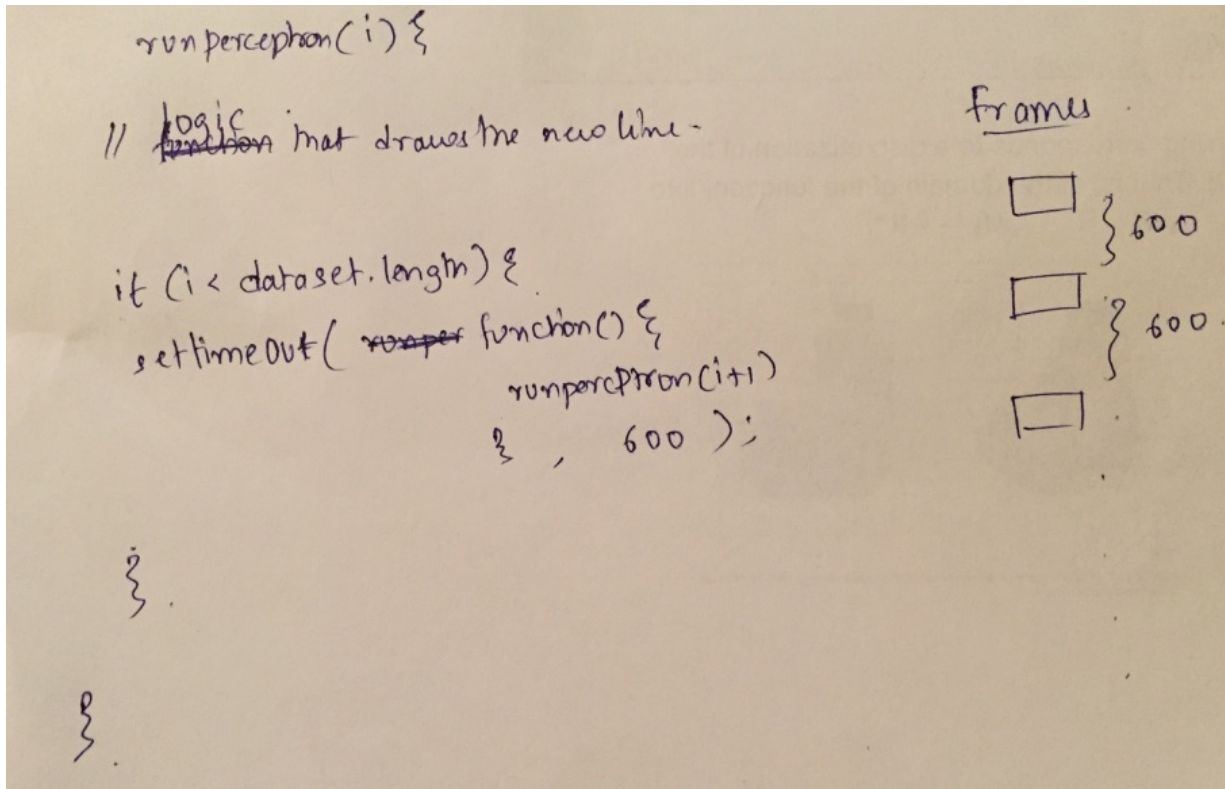 runperceptron(i) {
// logic that draws the new line.
if (i < dataset.length) {
settimeout( function() {
runperceptron(i+1)
} , 600 );
}.
}.
frames
600
600